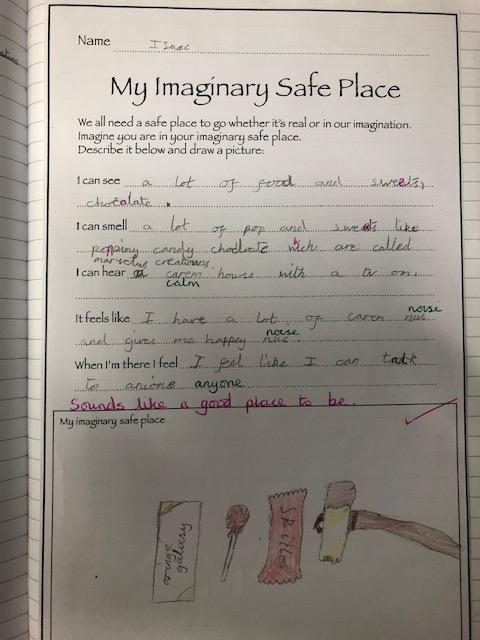 Name Isaac
My Imaginary Safe Place
We all need a safe place to go whether it's real or in our imagination.
Imagine you are in your imaginary safe place.
Describe it below and draw a picture:
I can see a lot of food and sweats,
chotalate.
I can smell a lot of pop and sweats like
popping candy choclate which are called
marvelus creations.
I can hear a carem house with a tv on.
calm
It feels like I have a lot of carem nus
noise
and gives me happey nus.
noise
When I'm there I feel I feel like I can talk
to anione anyone
Sounds like a good place to be.
My imaginary safe place
galaxsy